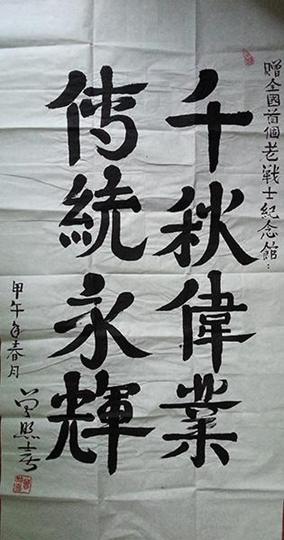 贈全國首個老戰士紀念館：
千秋偉業
傳統永輝
甲午年春月